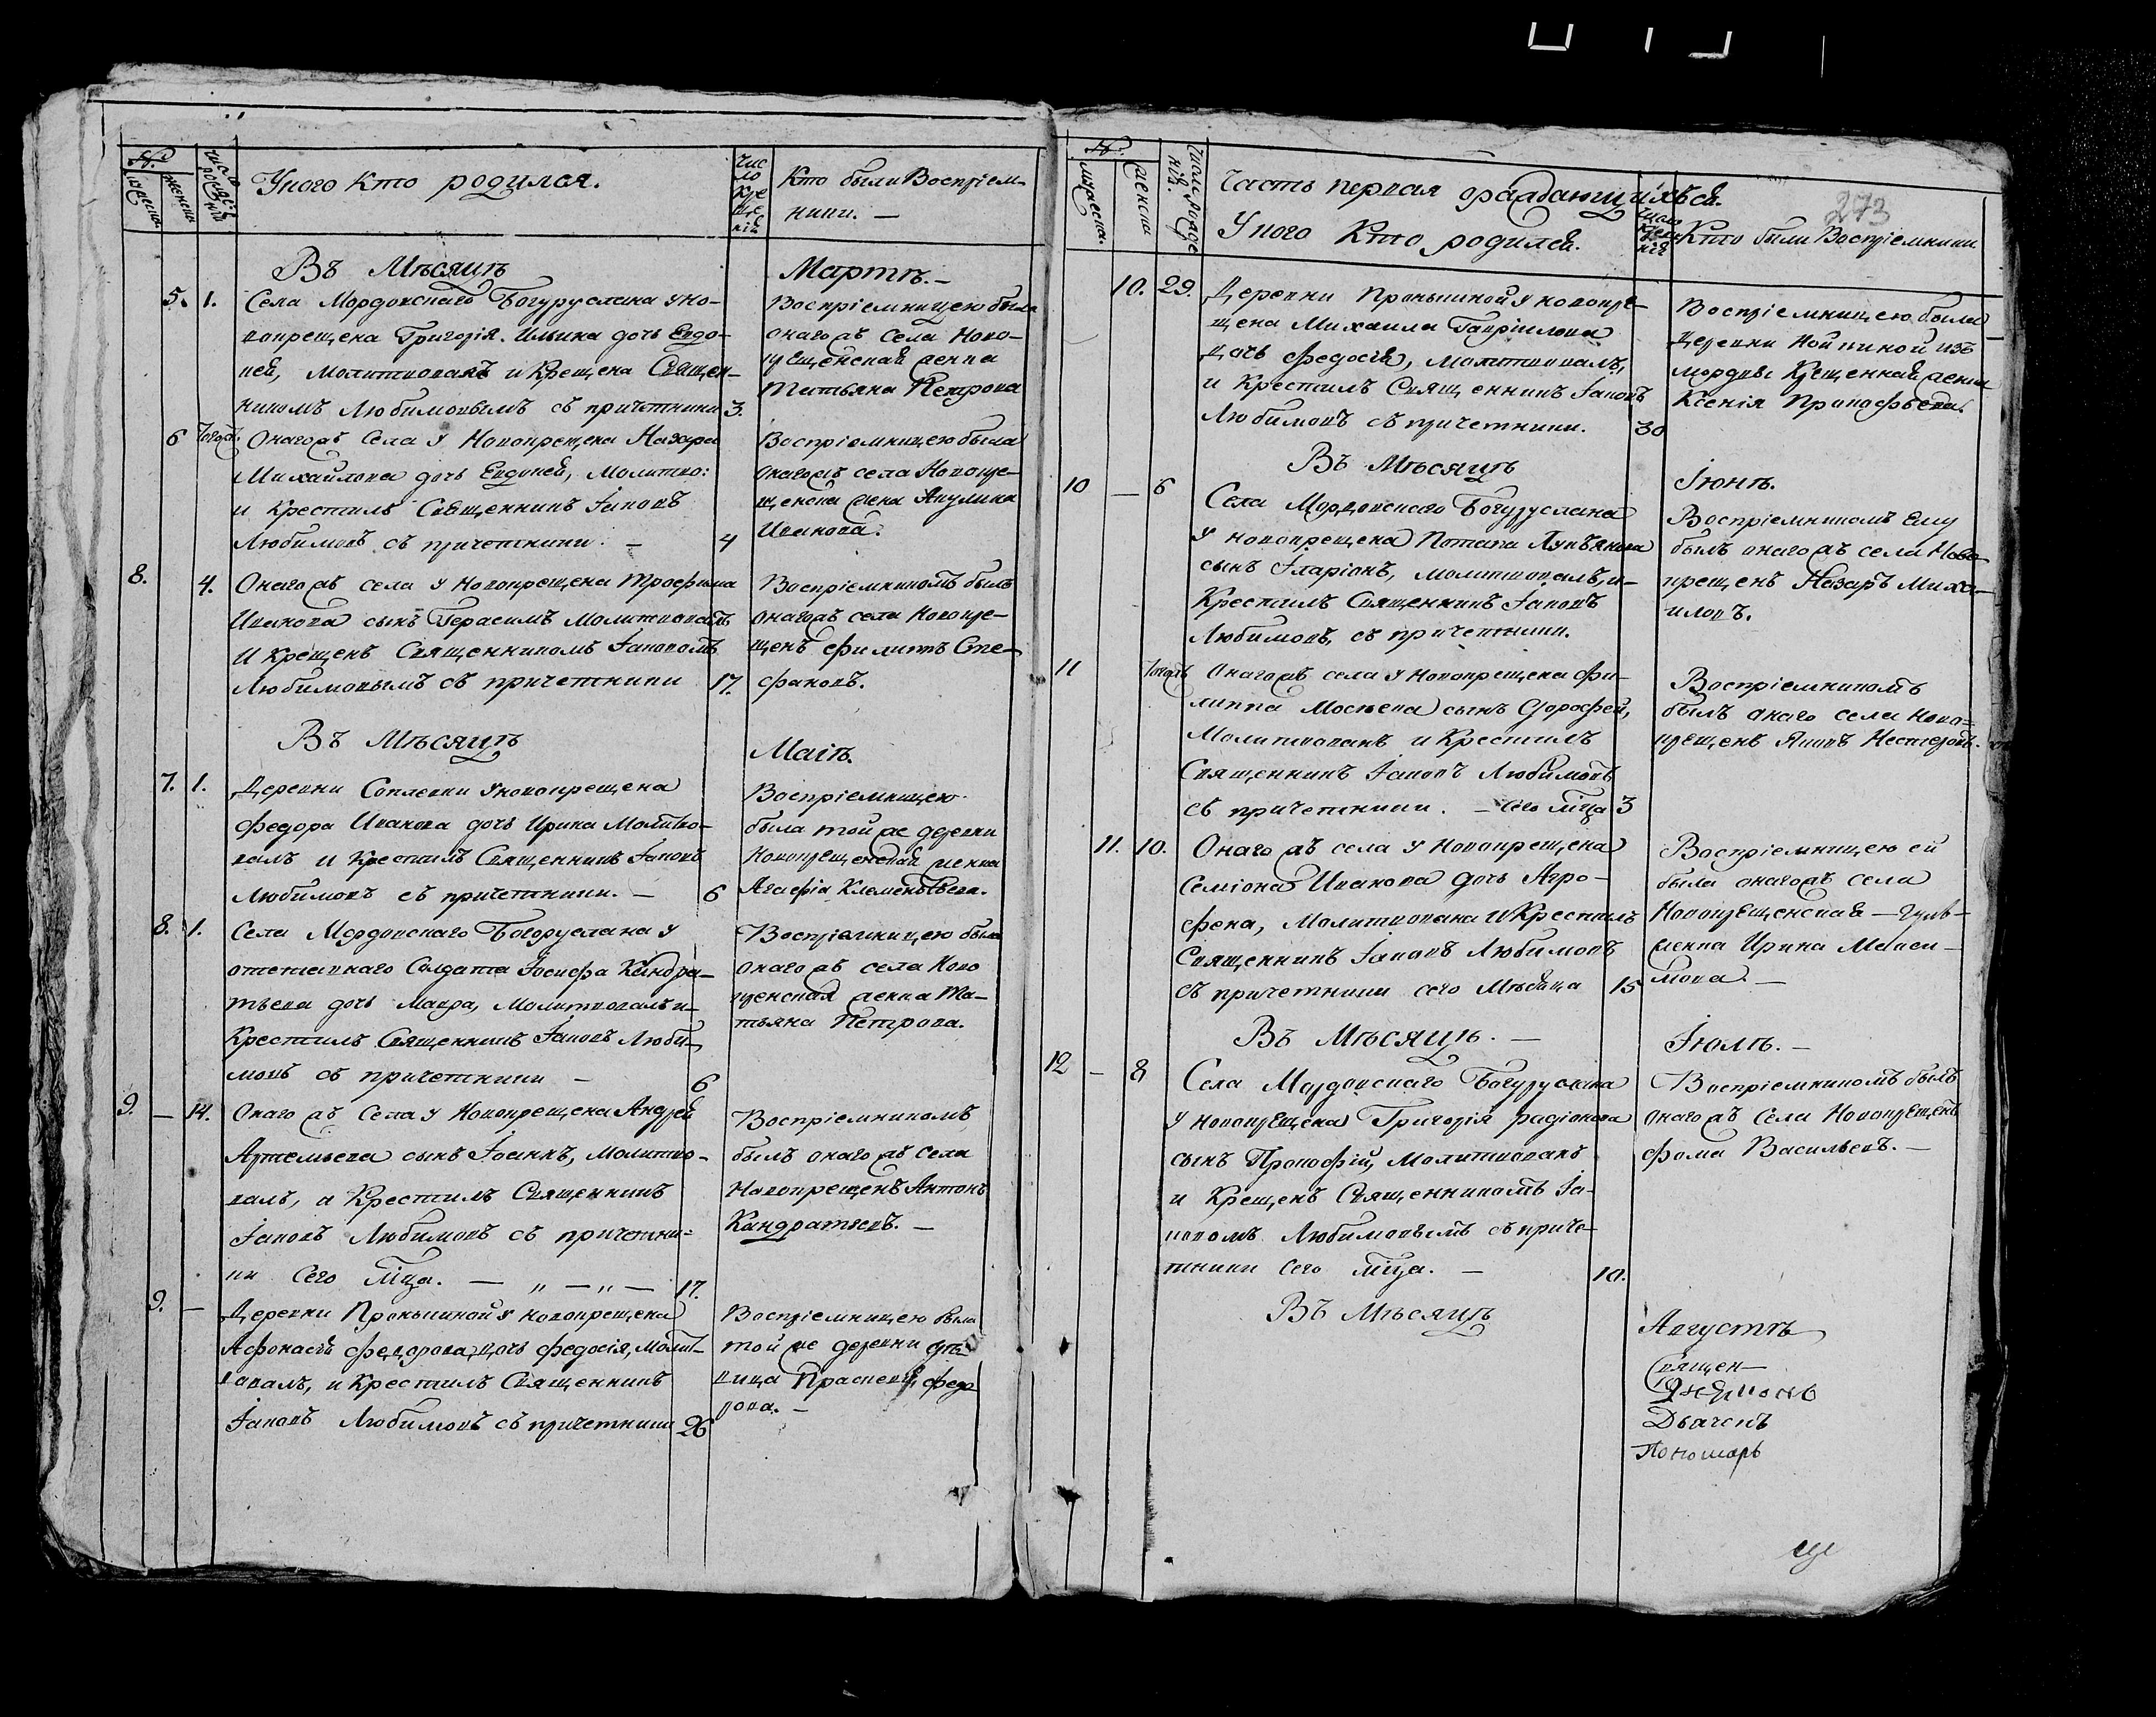 №.
мужеска
женска
число рожденій
У кого кто родился.
Число крещенія
Кто были Воспріем-
ники. —
Въ Мѣсяцѣ
Мартѣ. —
5. 1.
Села Мордовскаго Богуруслана у но-
вокрещена Григорія Ильина дочь Евдо-
кея, молитвована и Крещена Священ-
никомъ Любимовымъ съ причетники 3.
Воспріемницею была
онагожъ села Ново-
крещенская женка
Татьяна Петрова
6 Тогожъ
Онагожъ Села у Новокрещена Назара
Михайлова дочь Евдокея, Молитво:
и Крестилъ Священникъ Іаковъ
Любимовъ съ причетники. — 4
Воспріемницею была
онагожъ села Новокре-
щенска жена Акулина
Иванова.
8. 4.
Онагожъ села у Новокрещена Трофима
Иванова сынъ Герасимъ Молитвованъ
И Крещенъ Священникомъ Іаковомъ
Любимовымъ съ причетники 17.
Воспріемникомъ былъ
онагожъ села Новокре-
щенъ Филиппъ Сте-
фановъ.
Въ Мѣсяцѣ
Маіѣ.
7. 1.
Деревни Соплевки у новокрещена
Федора Иванова дочь Ирина Молитво-
валъ и Крестилъ Священникъ Іаковъ
Любимовъ съ причетники. — 6
Воспріемницею
была той же деревни
Новокрещенская женка
Агафіа Клементьева.
8. 1.
Села Мордовскаго Богоруслана у
отставнаго Солдата Іосифа Кандра-
тьева дочь Мавра, Молитвовалъ и
Крестилъ Священникъ Іаковъ Люби-
мовъ съ причетники — 6
Воспріемницею была
онагожъ села Ново
щенская женка Та-
тьяна Петрова.
9. — 14.
Онагожъ Села у Новокрещена Андрея
Артемьева сынъ Іоаннъ, Молитво-
валъ, и Крестилъ Священникъ
Іаковъ Любимовъ съ причетни-
ки Сего мца. — „ — „ — 17.
Воспріемникомъ
былъ онагожъ села
Новокрещенъ Антонъ
Кандратьевъ. —
9. —
Деревни Пронькиной у новокрещена
Афонасья Федорова дочь Федосія, Молит-
вовалъ, и Крестилъ Священникъ
Іаковъ Любимовъ съ причетники 26
Воспріемницею была
той же деревни дѣ-
вица Прасковья Федо
рова. —
№.
мужеска.
женска
Число рожденія.
Часть первая ораждающихъся.
273
У кого Кто родился.
Число крещенія
Кто были Воспріемники
10. 29.
Деревни Пронькиной у новокре-
щена Михаила Гавріилова
дочь Федосія, Молитвовалъ,
и Крестилъ Священникъ Іаковъ
Любимовъ съ причетники. 30
Воспріемницею была
Деревни Нойкиной изъ
мордвы Крещенная женка
Ксенія Прокофьева.
Въ Мѣсяцѣ
Іюнѣ.
10 — 6
Села Мордовскаго Богуруслана
у новокрещена Потапа Лукъянова
сынъ Иларіонъ, молитвовалъ, и
Крестилъ Священникъ Іаковъ
Любимовъ, съ причетники.
Воспріемникомъ Ему
былъ онагожъ села Ново-
крещенъ Назаръ Миха-
иловъ.
11 Тогожъ
Онагожъ села у Новокрещена Фи-
липпа Мосѣева сынъ Дорофей,
Молитвованъ и Крестилъ
Священникъ Іаковъ Любимовъ
съ причетники. — Сего мца 3
Воспріемникомъ
былъ онаго села Ново-
крещенъ Яковъ Нестеровъ.
11. 10.
Онагожъ села у Новокрещена
Семіона Иванова дочь Агро-
фена, Молитвована и Крестилъ
Священникъ Іаковъ Любимовъ
съ причетники сего Мѣсяца 15
Воспріемницею ей
была онагожъ села
Новокрещенская —
женка Ирина Макси-
мова. —
Въ Мѣсяцѣ. —
Іюлѣ. —
12 — 8
Села Мордовскаго Богуруслана
у новокрещена Григорія Радіонова
сынъ Прокофій, Молитвованъ
и Крещенъ Священникомъ Іа-
ковомъ Любимовымъ съ приче-
тники Сего мца. — 10.
Воспріемникомъ былъ
онагожъ Села Новокрещенъ
Фома Васильевъ. —
Въ Мѣсяцѣ
Августѣ
Священ—
Дьячекъ
Пономарь